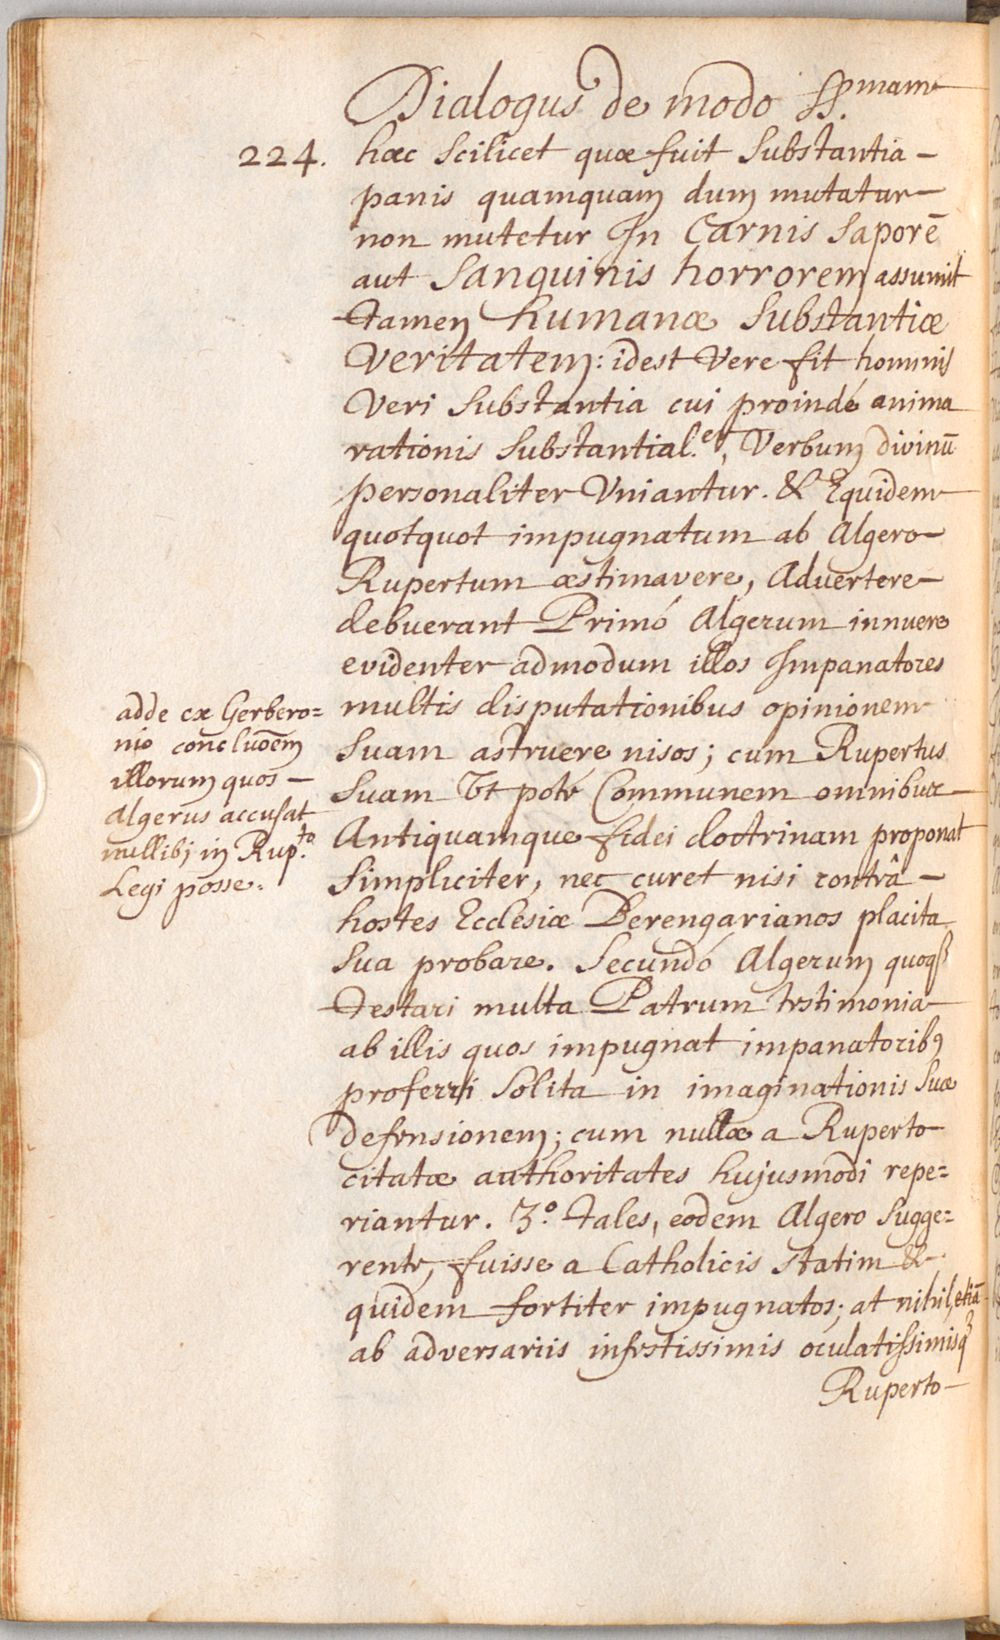 Dialogus de modo SS.mam
224.
hæc scilicet quæ fuit substantia
panis quamquam dum mutatur
non mutetur In Carnis saporē
aut sanguinis horrorem assumit
tamen humanæ substantiæ
Veritatem: idest Vere fit hominis
Veri substantia cui proindé anima
rationis substantial.er, Verbum divinū
personaliter Uniantur. & Equidem
quotquot impugnatum ab Algero
Rupertum æstimavere, Advertere
debuerant Primó Algerum innuere
evidenter admodum illos Impanatores
multis disputationibus opinionem
suam astruere nisos; cum Rupertus
suam Ut potè Communem omnibus
Antiquamque fidei doctrinam proponat
simpliciter, nec curet nisi contrâ
hostes Ecclesiæ Berengarianos placita
sua probare. Secundó Algerum quoqꝫ
testari multa Patrum testimonia
ab illis quos impugnat impanatoribꝫ
proferri solita in imaginationis suæ
defensionem; cum nullæ a Ruperto
citatæ authoritates hujusmodi repe=
riantur. 3.º tales, eodem Algero sugge=
rente, fuisse a Catholicis statim &
quidem fortiter impugnatos; at nihil, etiā
ab adversariis infestissimis oculatissimisqꝫ
Ruperto
adde ex Gerbero=
nio conclusiōem
illorum quos
Algerus accusat
nullibi in Rup.to
Legi posse.